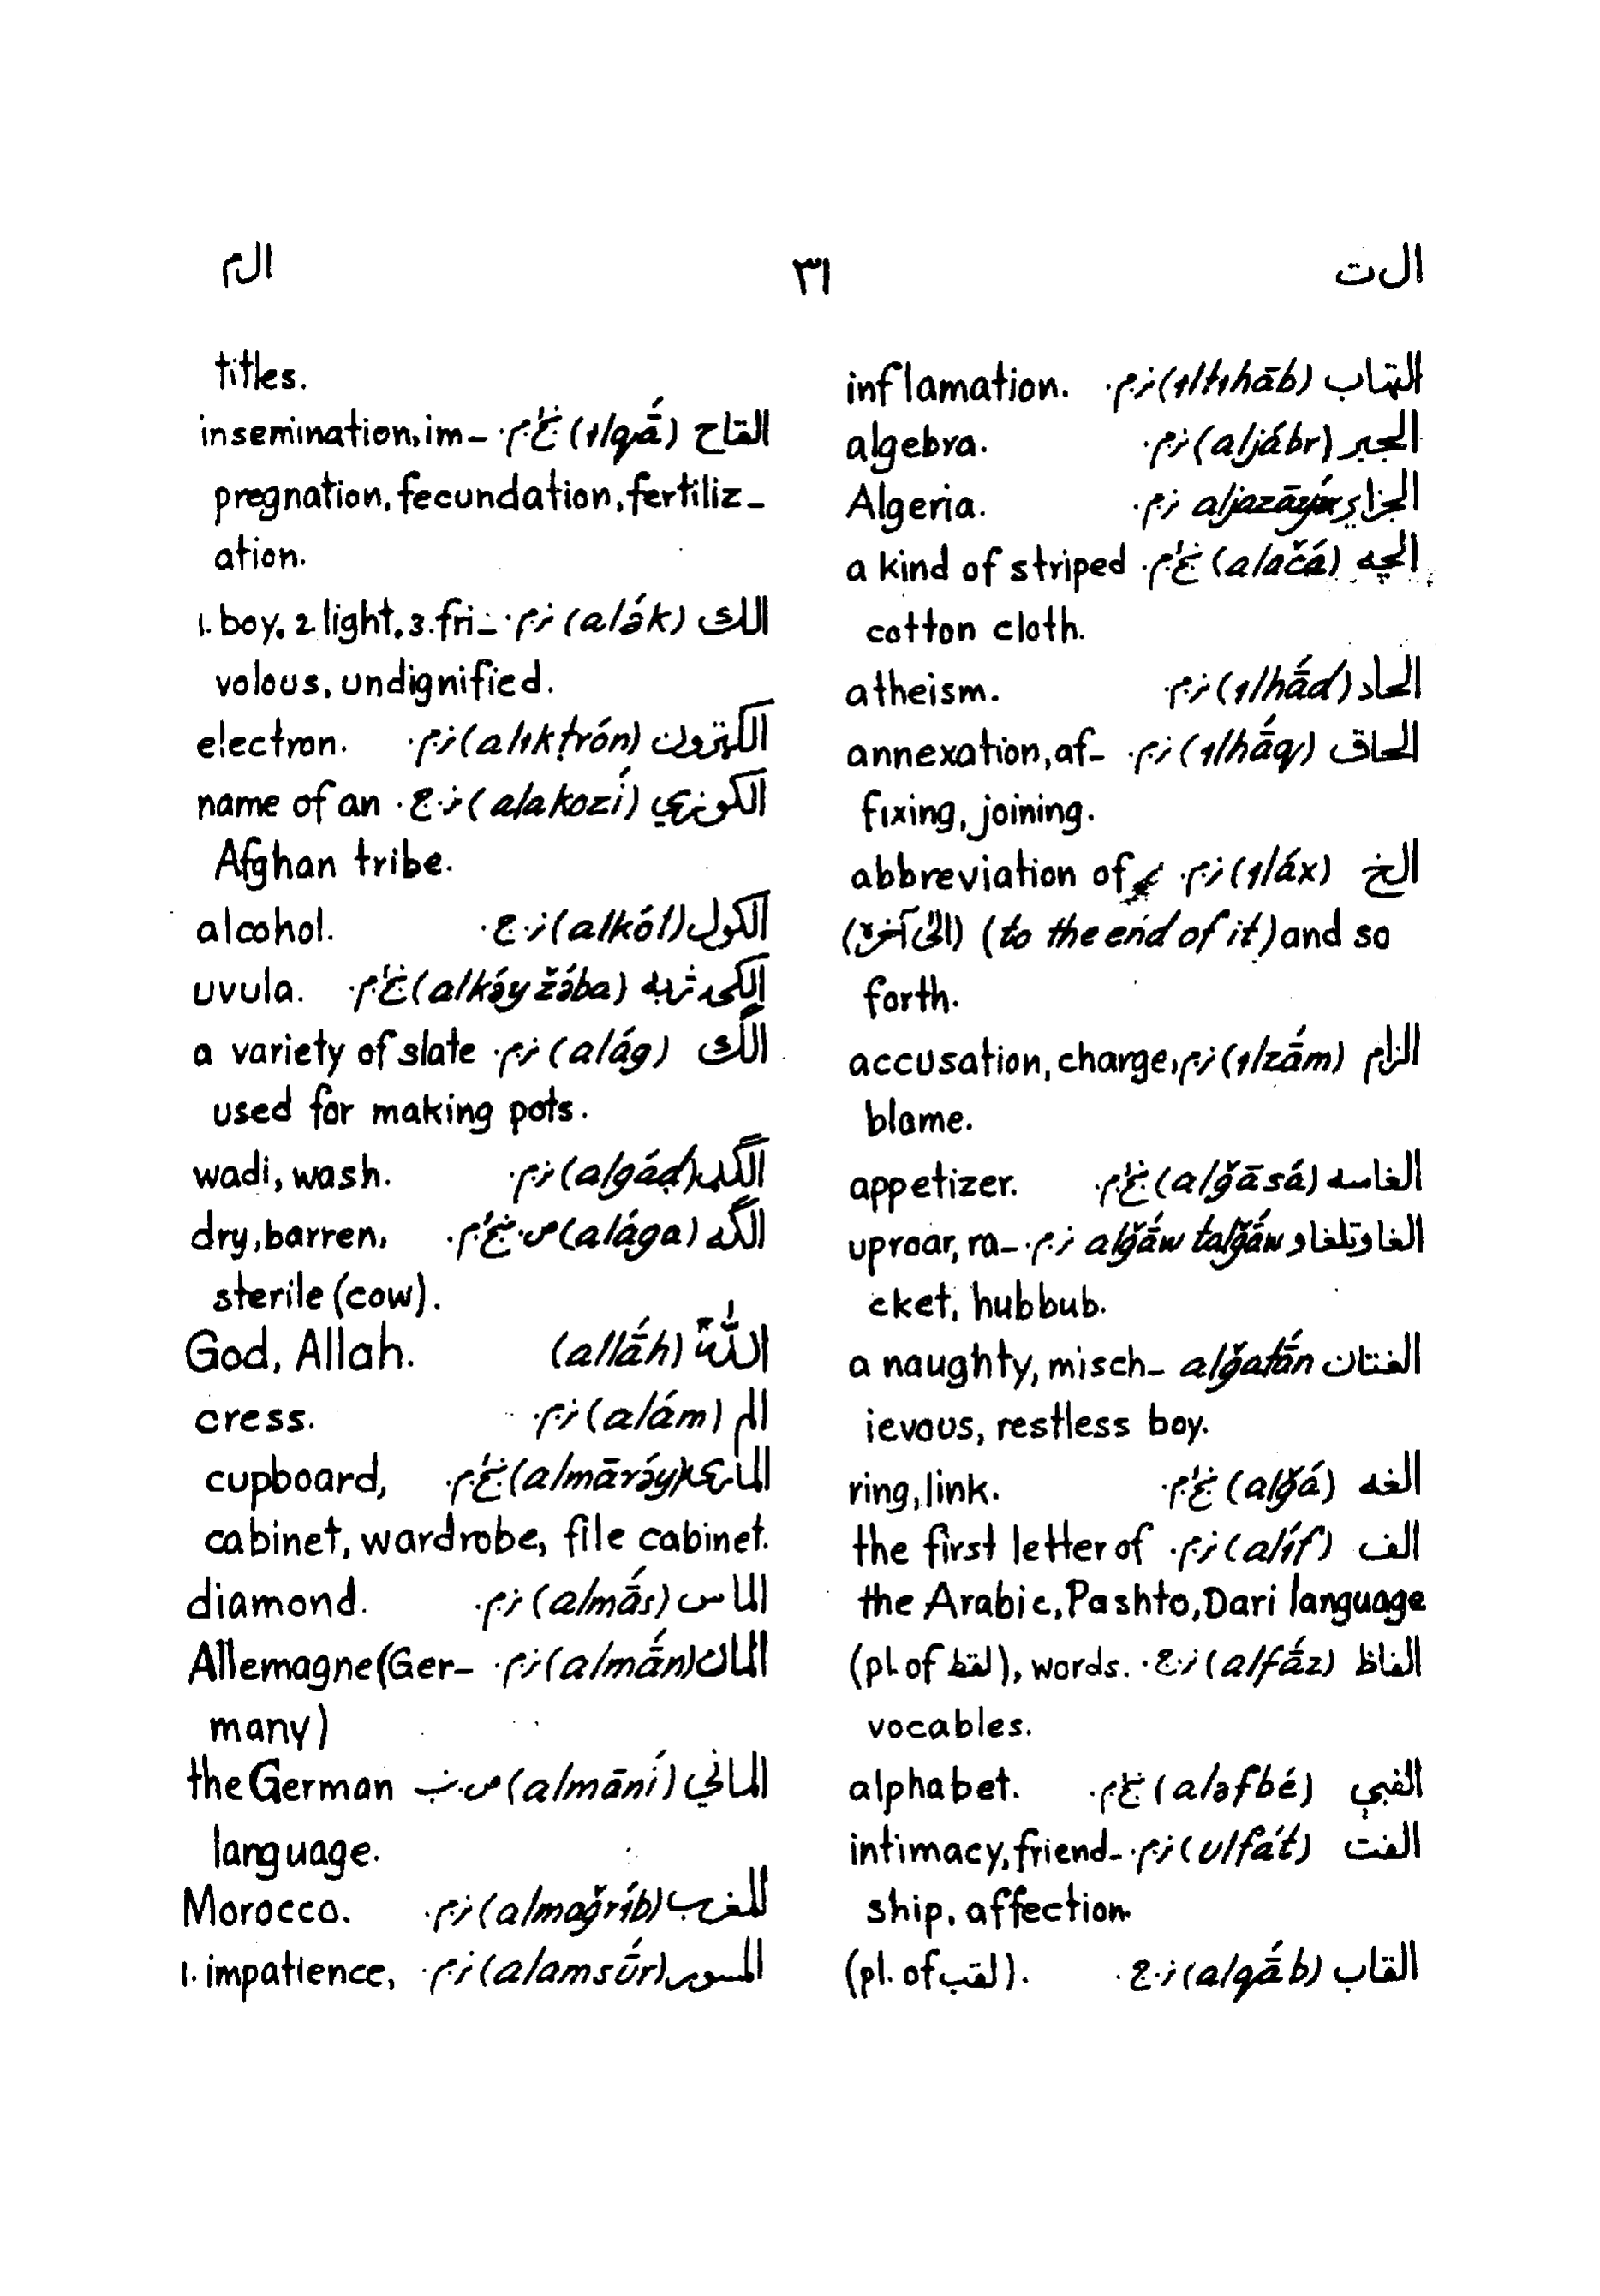 ال ت
۳۱
ال م
التهاب (ɪltɪhāb) ز.م. inflamation.
الجبر (aljábr) ز.م. algebra.
الجزاير aljazāyɪ́r ز.م. Algeria.
الچه (alačá) ښځ.م. a kind of striped
cotton cloth.
الحاد (ɪlhā́d) ز.م. atheism.
الحاق (ɪlhā́q) ز.م. annexation, af-
fixing, joining.
الخ (ɪláx) ز.م. abbreviation of
(الی آخره) (to the end of it) and so
forth.
الزام (ɪlzā́m) ز.م. accusation, charge,
blame.
الغاسه (alğāsá) ښځ.م. appetizer.
الغاو تلغاو alğā́w talğā́w ز.م. uproar, ra-
cket, hubbub.
الغتان alğatā́n a naughty, misch-
ievous, restless boy.
الغه (alğá) ښځ.م. ring, link.
الف (alɪ́f) ز.م. the first letter of
the Arabic, Pashto, Dari language
الفاظ (alfā́z) ز.ج. (pl. of لفظ), words.
vocables.
الفبې (aləfbé) ښځ.م. alphabet.
الفت (ulfát) ز.م. intimacy, friend-
ship, affection.
القاب (alqā́b) ز.ج. (pl. of لقب).
titles.
القاح (ɪlqā́) ښځ.م. insemination, im-
pregnation, fecundation, fertiliz-
ation.
الک (alə́k) ز.م. 1. boy, 2. light, 3. fri-
volous, undignified.
الکترون (alɪkṭrón) ز.م. electron.
الکوزي (alakozí) ز.ج. name of an
Afghan tribe.
الکول (alkól) ز.ج. alcohol.
الکۍ ژبه (alkə́y žə́ba) ښځ.م. uvula.
الګ (alág) ز.م. a variety of slate
used for making pots.
الګډ (algáḍ) ز.م. wadi, wash.
الګه (alága) ص.ښځ.م. dry, barren,
sterile (cow).
اللّٰه (allā́h) God, Allah.
الم (alám) ز.م. cress.
المارۍ (almārə́y) ښځ.م. cupboard,
cabinet, wardrobe, file cabinet.
الماس (almā́s) ز.م. diamond.
المان (almā́n) ز.م. Allemagne (Ger-
many)
الماني (almāní) ص.ب the German
language.
المغرب (almağríb) ز.م. Morocco.
المسور (alamsū́r) ز.م. 1. impatience,